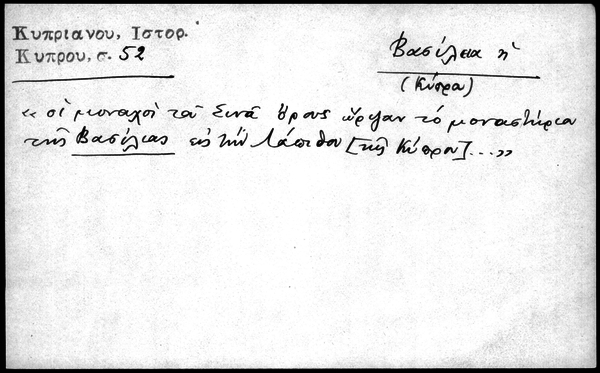 Κυπριανου, Ιστορ.
Κυπρου, σ. 52
Βασίλεια ἡ
(Κύπρου)
« οἱ μοναχοὶ τοῦ Σινᾶ ὄρους ὥρισαν τὸ μοναστήριον
τῆς Βασίλιας εἰς τὴν Λάπιθον [τῆς Κύπρου]...»